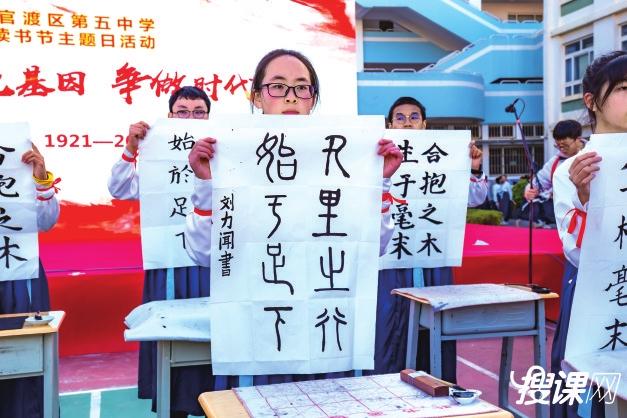 官渡区第五中学
读书节主题日活动
基因 争做时代
1921—2
合抱之木
始於足下
千里之行
始于足下
刘力闻書
合抱之木
生于毫末
毫末
搜课网